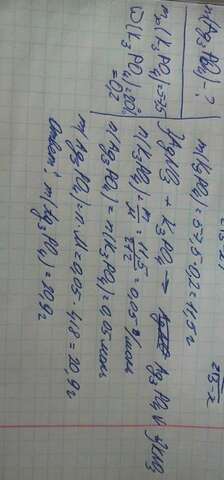 m(Ag3PO4) - ?
mр(K3PO4) = 57,5
ω(K3PO4) = 20%
= 0,2
m(K3PO4) = 57,5·0,2 = 11,5г
3AgNO3 + K3PO4 → Ag3PO4↓ + 3KNO3
n(K3PO4) = m/M = 11,5/212 = 0,05 моль
n(Ag3PO4) = n(K3PO4) = 0,05 моль
m(Ag3PO4) = n·M = 0,05·418 = 20,9г
Ответ: m(Ag3PO4) = 20,9г